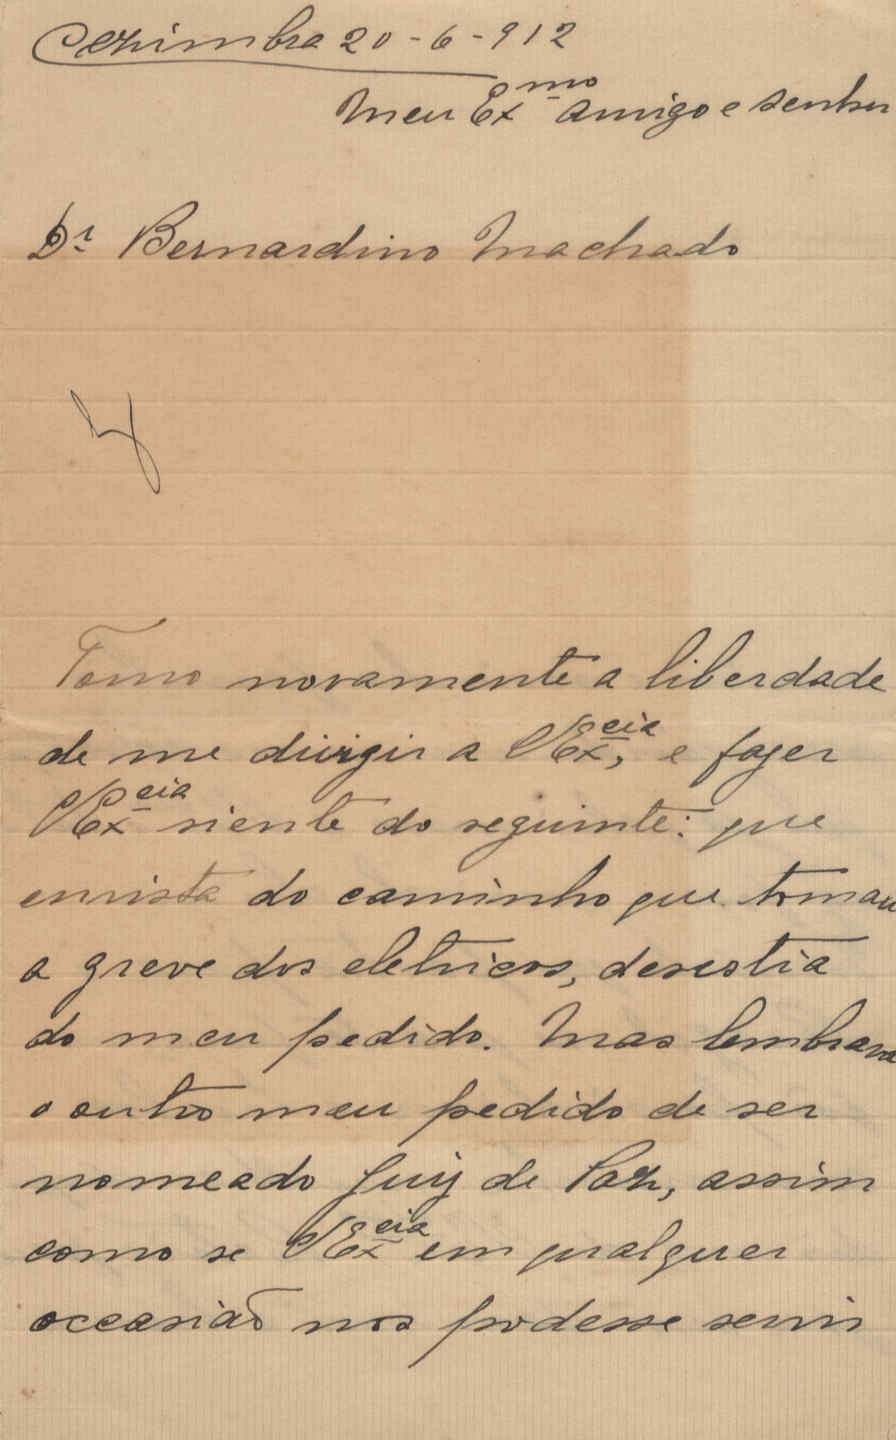 Cezimbra 20-6-912
Meu Exmo amigo e senhor
Dr Bernardino Machado
Tomo novamente a liberdade
de me dirigir a VExcia, e fazer
VExcia siente do seguinte: que
emvista do caminho que tomau
a greve dos eletricos, desestia
do meu pedido. Mas lembrava
o outro meu pedido de ser
nomeado Juiz de Paz, assim
como se VExcia em qualquer
occasião nos podesse servir